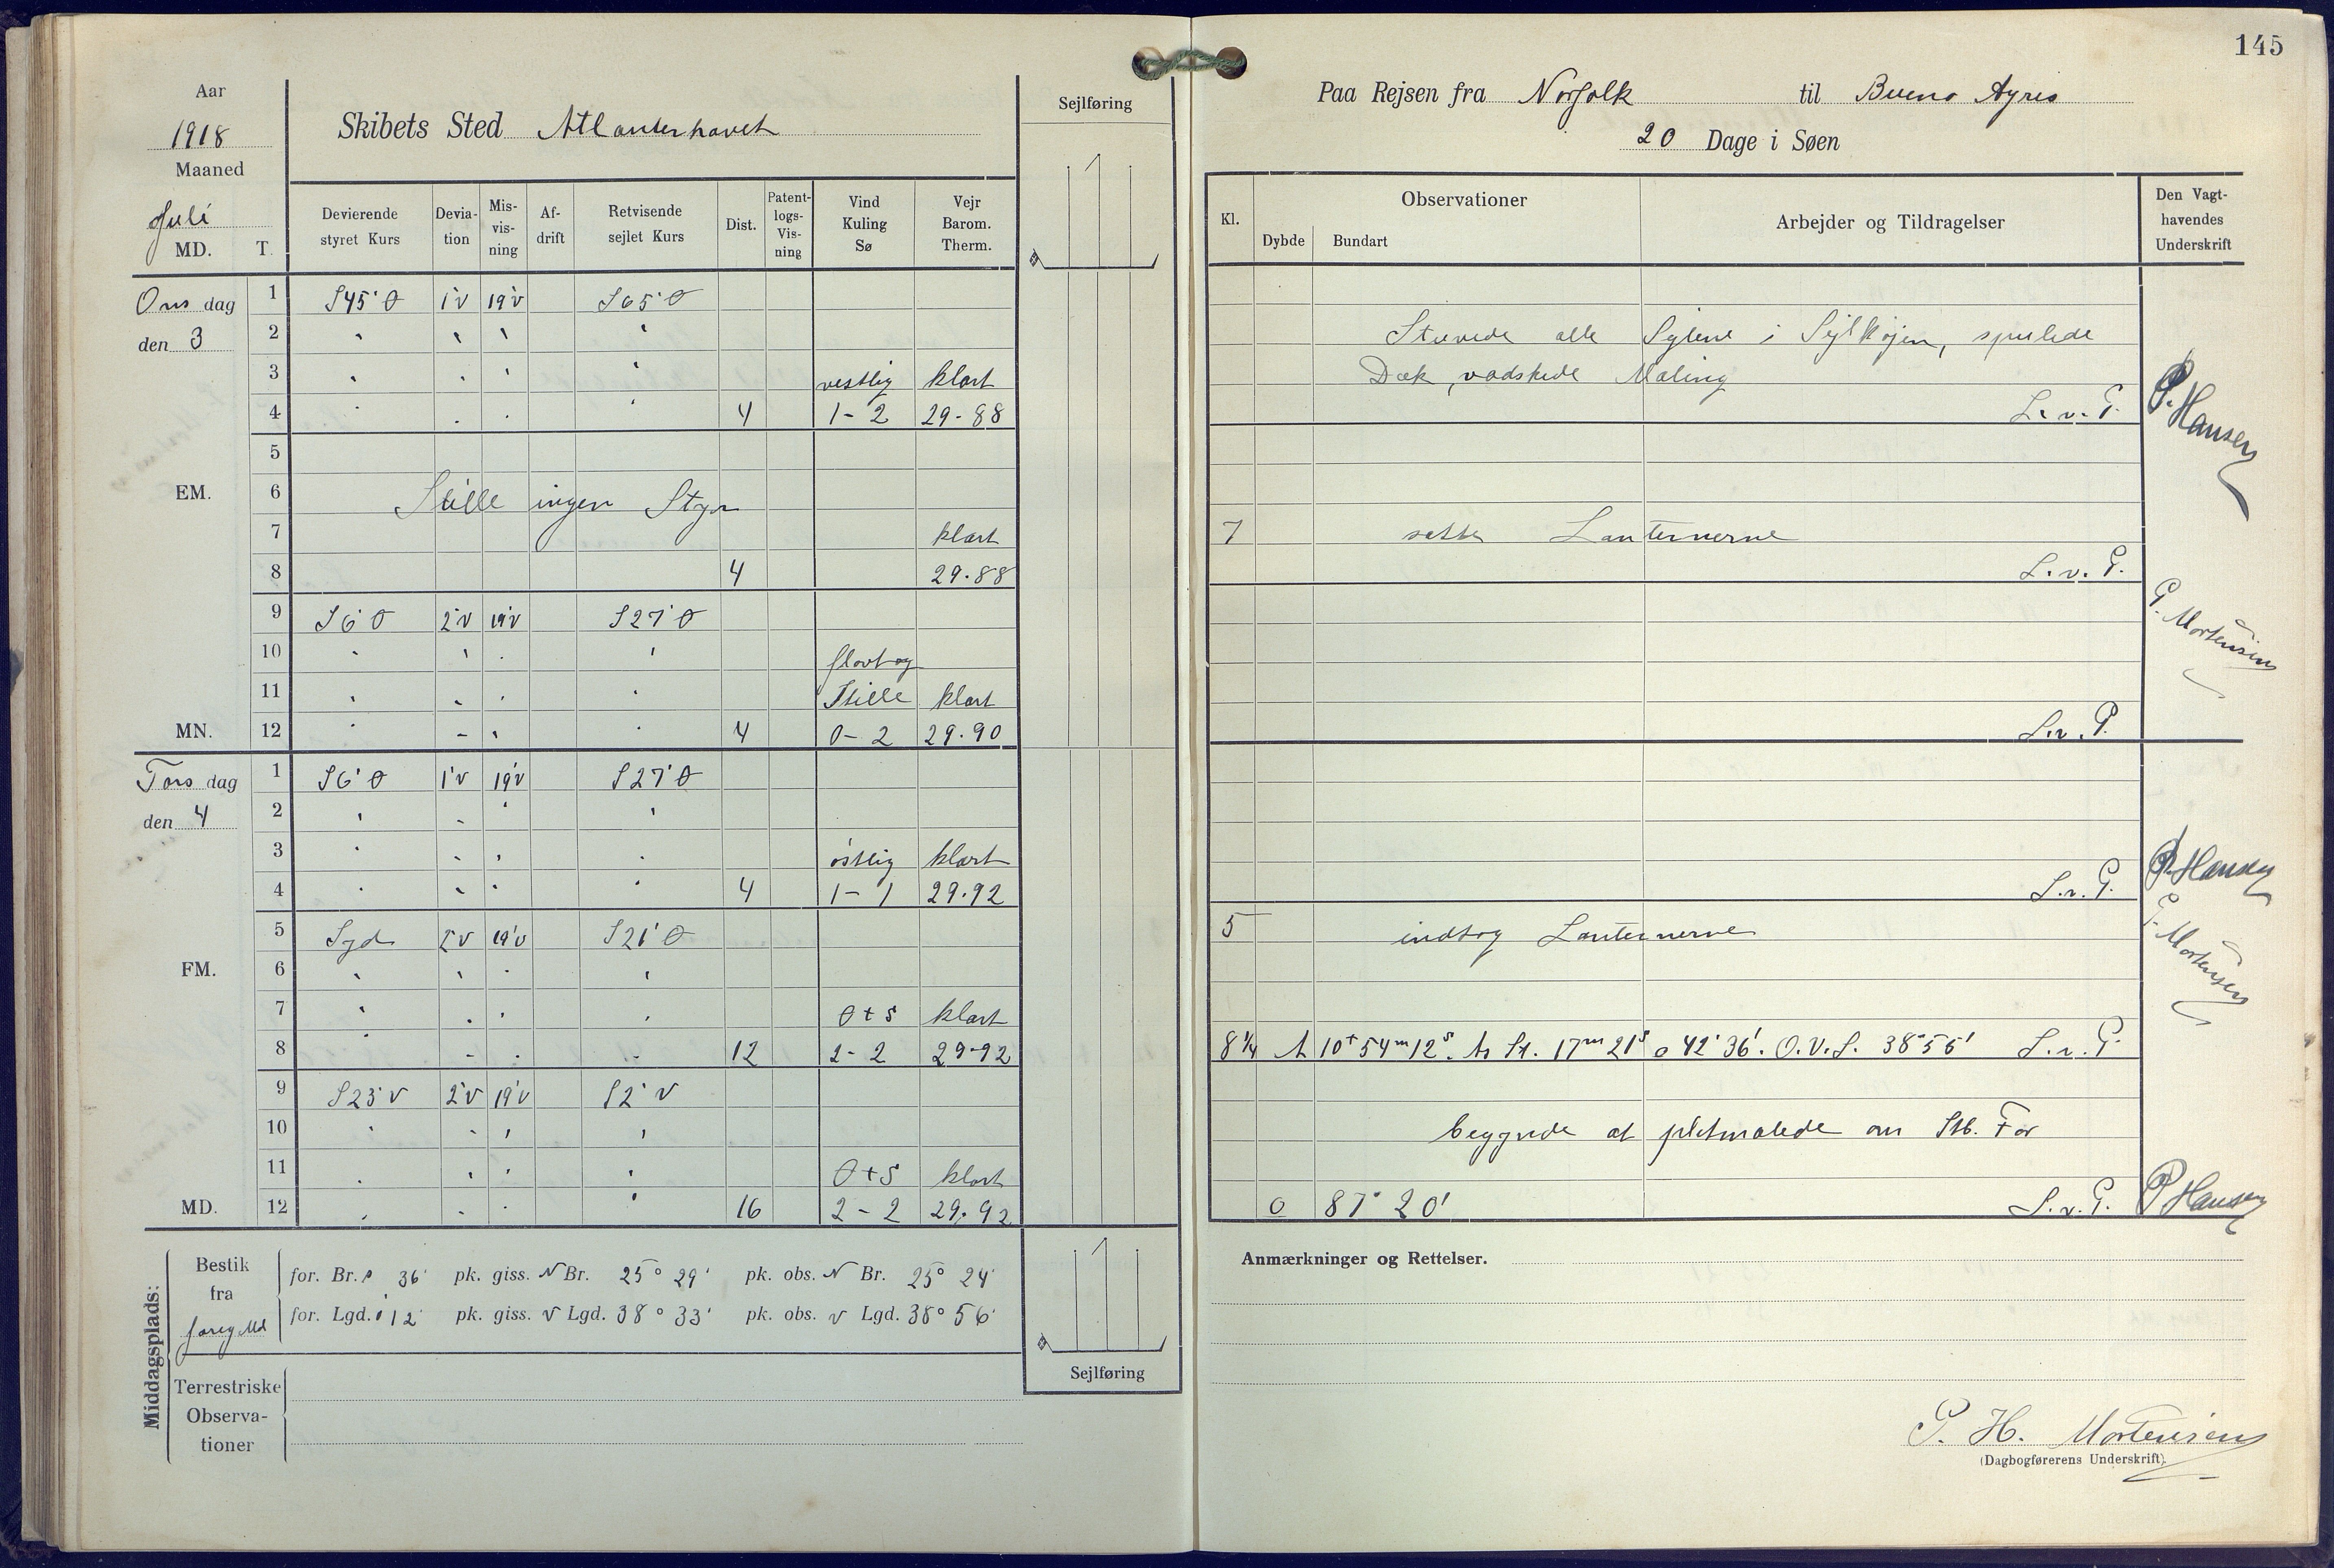 145
Aar
1918
Maaned
Juli
MD. T.
Skibets Sted Atlanterhavet
Sejlføring
Devierende styret Kurs
Devia-tion
Mis-vis-ning
Af-drift
Retvisende sejlet Kurs
Dist.
Patent-logs-Vis-ning
Vind Kuling Sø
Vejr Barom. Therm.
Ons dag 1 S45°O 1°V 19°V S65°O
den 3 2 " " " "
3 " " " " vestlig klart
4 " " " " 4 1-2 29-88
5
EM. 6 Stille ingen Styr
7 klart
8 4 29.88
9 S6°O 2°V 19°V S27°O
10 " " " " flovt og
11 " " " " Stille klart
MN. 12 " " " " 4 0-2 29.90
Tors dag 1 S6°O 1°V 19°V S27°O
den 4 2 " " " "
3 " " " " østlig klart
4 " " " " 4 1-1 29.92
5 Syd 2°V 19°V S21°O
FM. 6 " " " "
7 " " " " O+S klart
8 " " " " 12 2-2 29-92
9 S23°V 2°V 19°V S2°V
10 " " " "
11 " " " " O+S klart
MD. 12 " " " " 16 2-2 29.92
Middagsplads:
Bestik fra
for. Br. 36' pk. giss. N Br. 25° 29' pk. obs. N Br. 25° 24'
for. Lgd. 12' pk. giss. V Lgd. 38° 33' pk. obs. V Lgd. 38° 56'
Terrestriske Observa-tioner
Sejlføring
Paa Rejsen fra Norfolk til Bueno Ayres
20 Dage i Søen
Kl.
Observationer
Dybde Bundart
Arbejder og Tildragelser
Den Vagt-havendes Underskrift
Stuvede alle Sejlene i Sejlkøjen, spulede
Dæk, vadskede Maling
L. v. P.
P. Hansen
7 satte Lanternerne
L. v. P.
P. Mortensen
L. v. P.
L. v. P.
P. Hansen
5 indtog Lanternerne
P. Mortensen
8 1/4 10 54m 12s. 17m 21s 42° 36'. O.V.L. 38°56' L. v. P.
begynde at pletmalede om Stb. For
o 87° 20' L. v. P.
P Hansen
Anmærkninger og Rettelser.
P. H. Mortensen
(Dagbogførerens Underskrift).